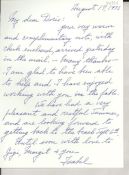 August 19, 
My dear Doris:
you very warm
and complimentary note, with
check enclosed, arrived yesterday
in the mail - Many thanks.
I am glad to have been able
to help and I have enjoyed
working with you on the table.
We have had a very
pleasant and restful summer,
and are looking forward to
getting back to the
Until soon with love to
you,
Isabel